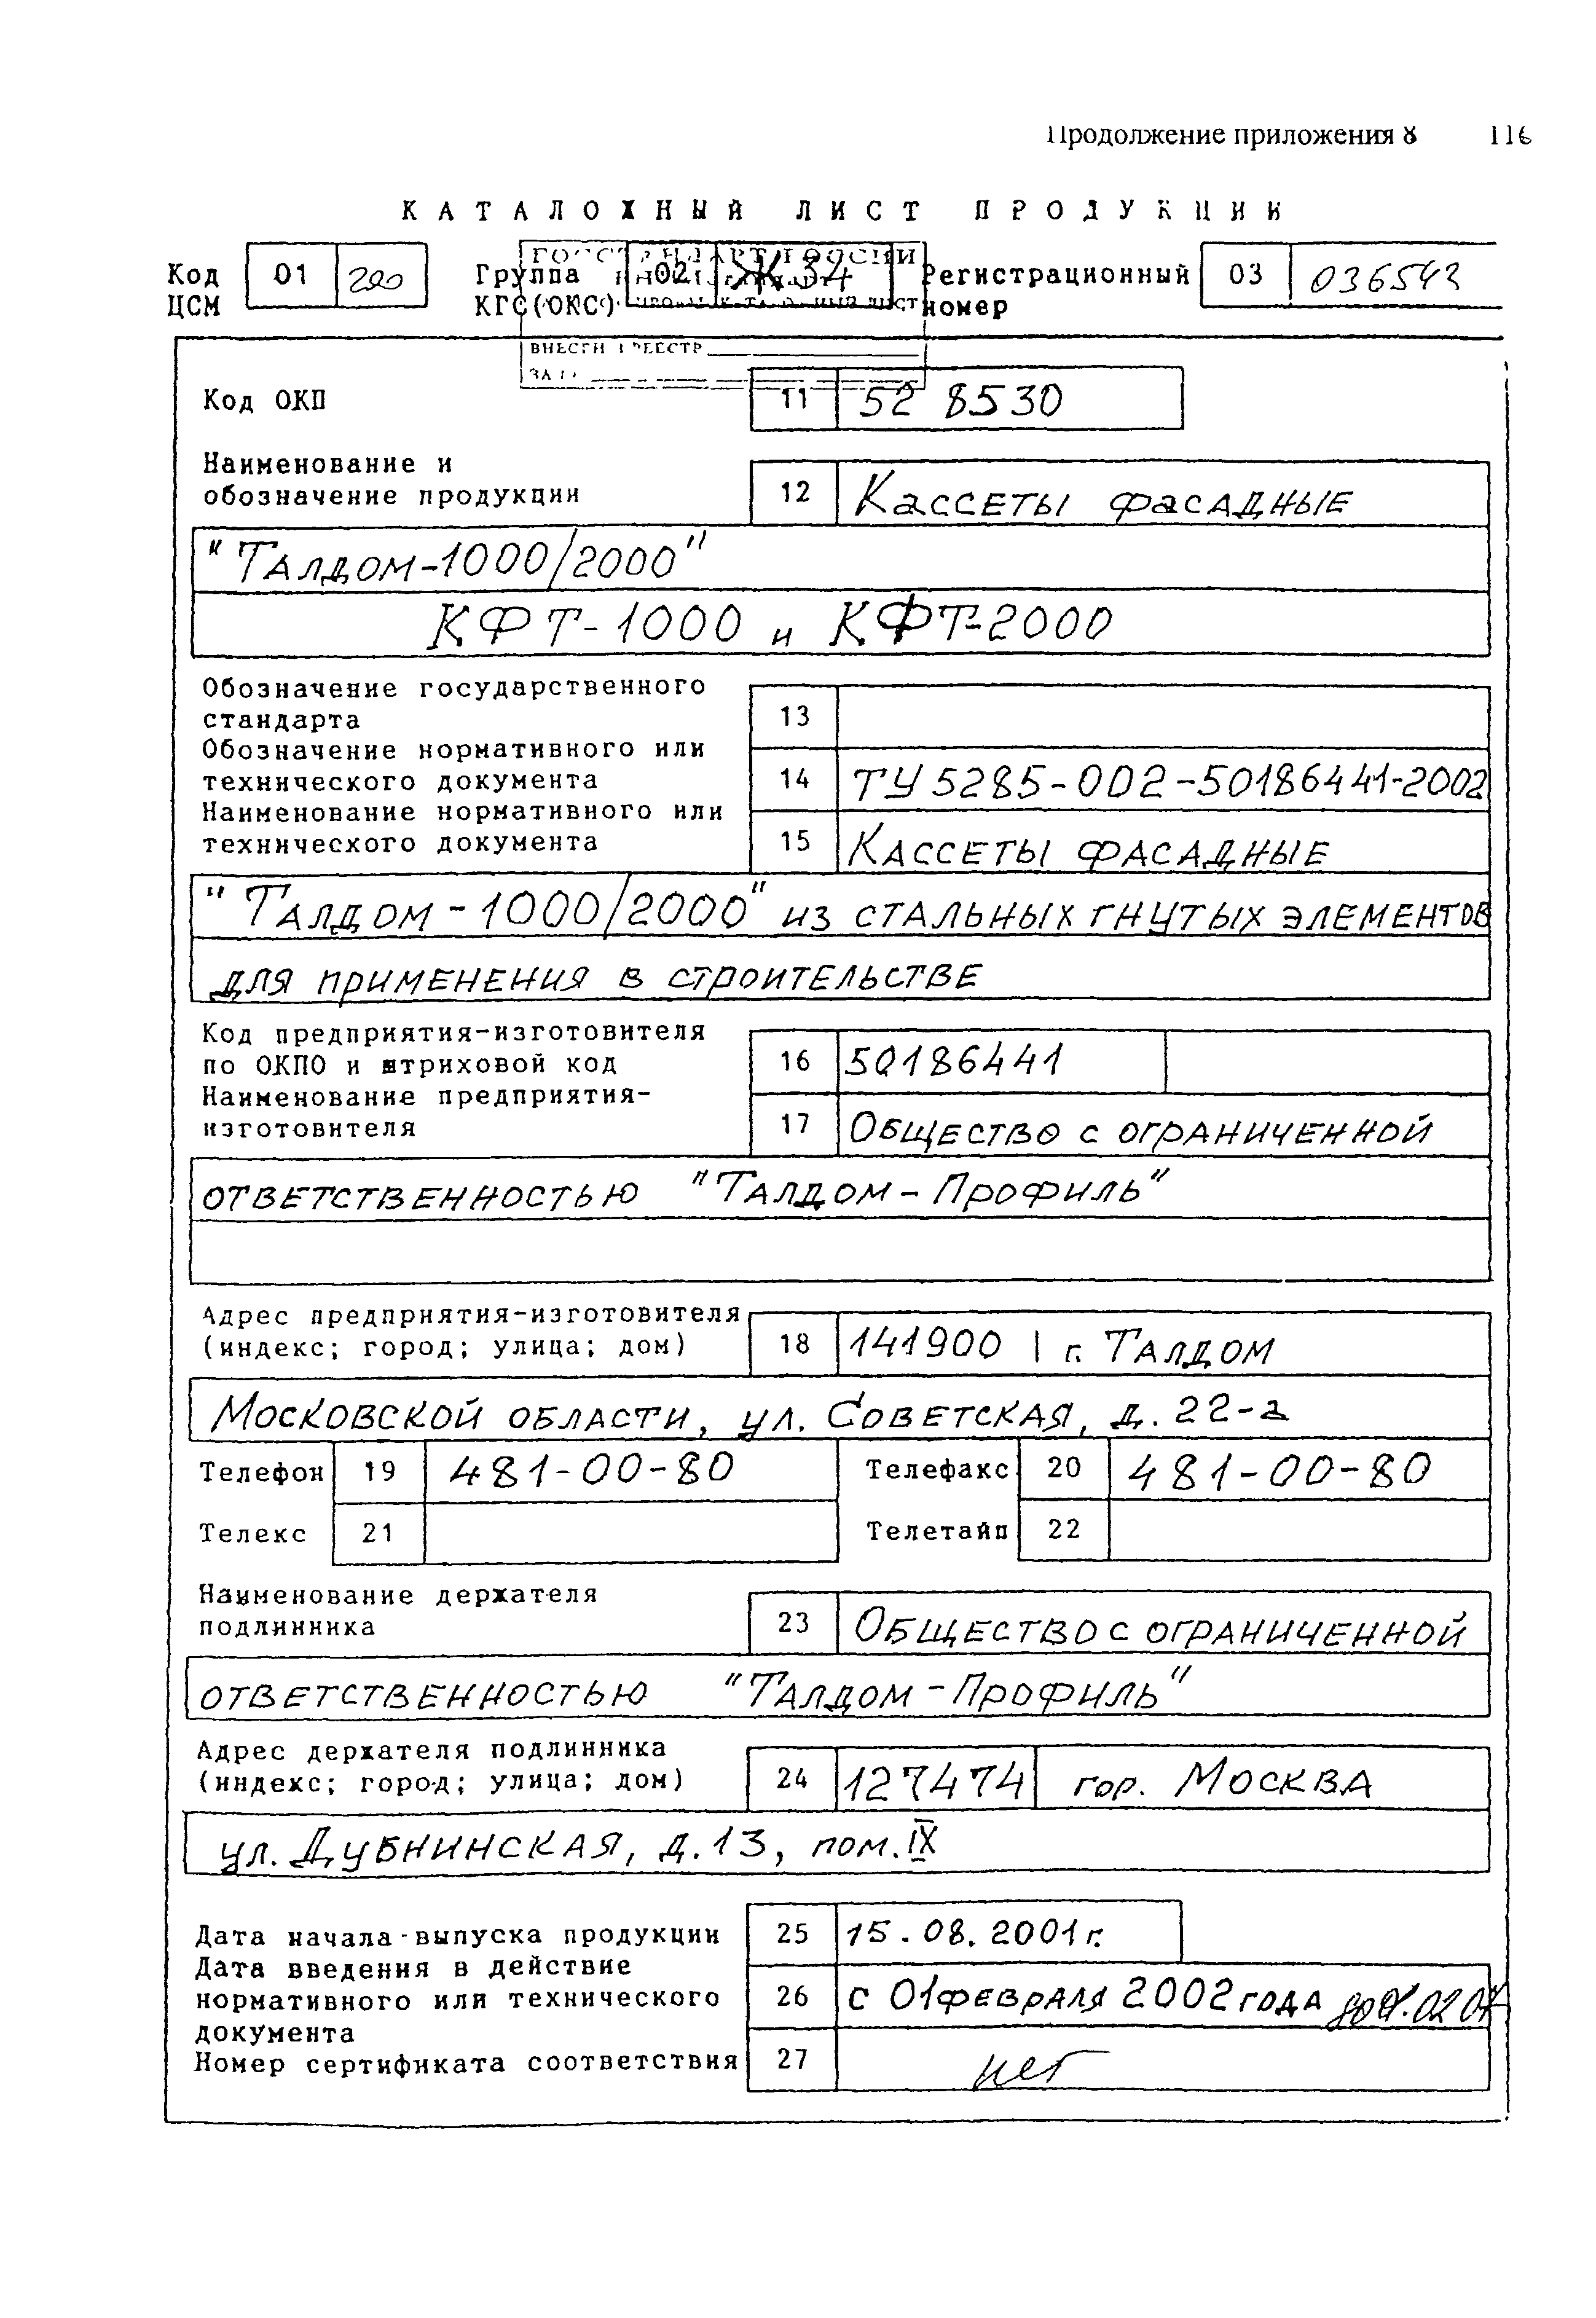 Продолжение приложения 8 116
КАТАЛОЖНЫЙ ЛИСТ ПРОДУКЦИИ
Код ЦСМ 01 200 Группа КГС(ОКС) 02 Ж34 Регистрационный номер 03 036543
ВНЕСЕН В РЕЕСТР
Код ОКП 11 52 8530
Наименование и
обозначение продукции 12 Кассеты фасадные
"Талдом-1000/2000"
КФТ-1000 и КФТ-2000
Обозначение государственного
стандарта 13
Обозначение нормативного или
технического документа 14 ТУ 5285-002-50186441-2002
Наименование нормативного или
технического документа 15 Кассеты фасадные
"Талдом-1000/2000" из стальных гнутых элементов
для применения в строительстве
Код предприятия-изготовителя
по ОКПО и штриховой код 16 50186441
Наименование предприятия-
изготовителя 17 Общество с ограниченной
ответственностью "Талдом-Профиль"
Адрес предприятия-изготовителя
(индекс; город; улица; дом) 18 141900 г. Талдом
Московской области, ул. Советская, д. 22-а
Телефон 19 481-00-80 Телефакс 20 481-00-80
Телекс 21 Телетайп 22
Наименование держателя
подлинника 23 Общество с ограниченной
ответственностью "Талдом-Профиль"
Адрес держателя подлинника
(индекс; город; улица; дом) 24 127474 гор. Москва
ул. Дубнинская, д. 13, пом. IX
Дата начала выпуска продукции 25 15.08.2001г.
Дата введения в действие
нормативного или технического 26 с 01 февраля 2002 года
документа
Номер сертификата соответствия 27 нет